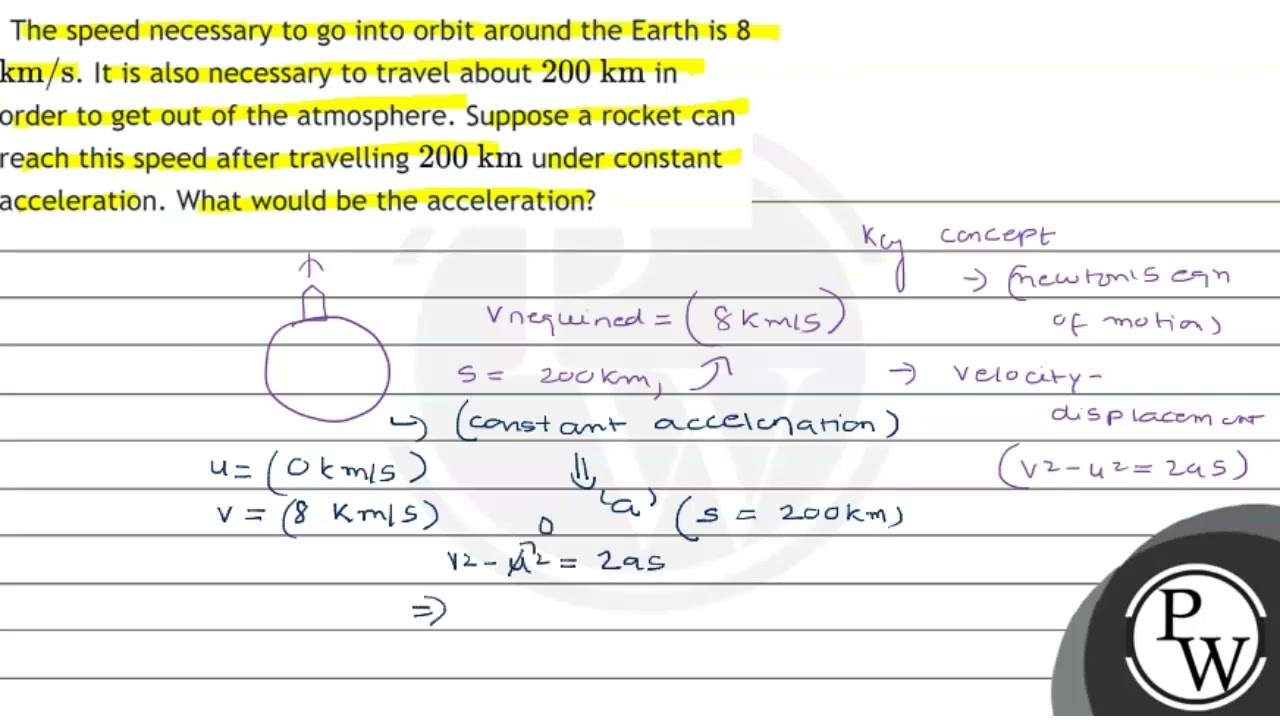 The speed necessary to go into orbit around the Earth is 8
km/s. It is also necessary to travel about 200 km in
order to get out of the atmosphere. Suppose a rocket can
reach this speed after travelling 200 km under constant
acceleration. What would be the acceleration?
Key concept
→ (newton's eqn
of motion)
V required = (8 km/s)
s = 200 km,
→ velocity-
displacement
↳ (constant acceleration)
(v2 - u2 = 2as)
u = (0 km/s)
⇓
v = (8 km/s)
'a' (s = 200 km)
0
v2 - u2 = 2as
⇒
P
W